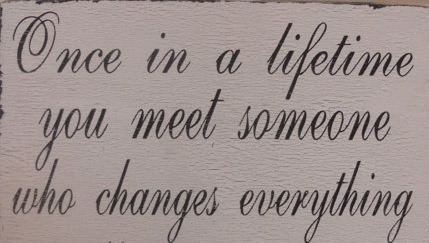 Once in a lifetime
you meet someone
who changes everything